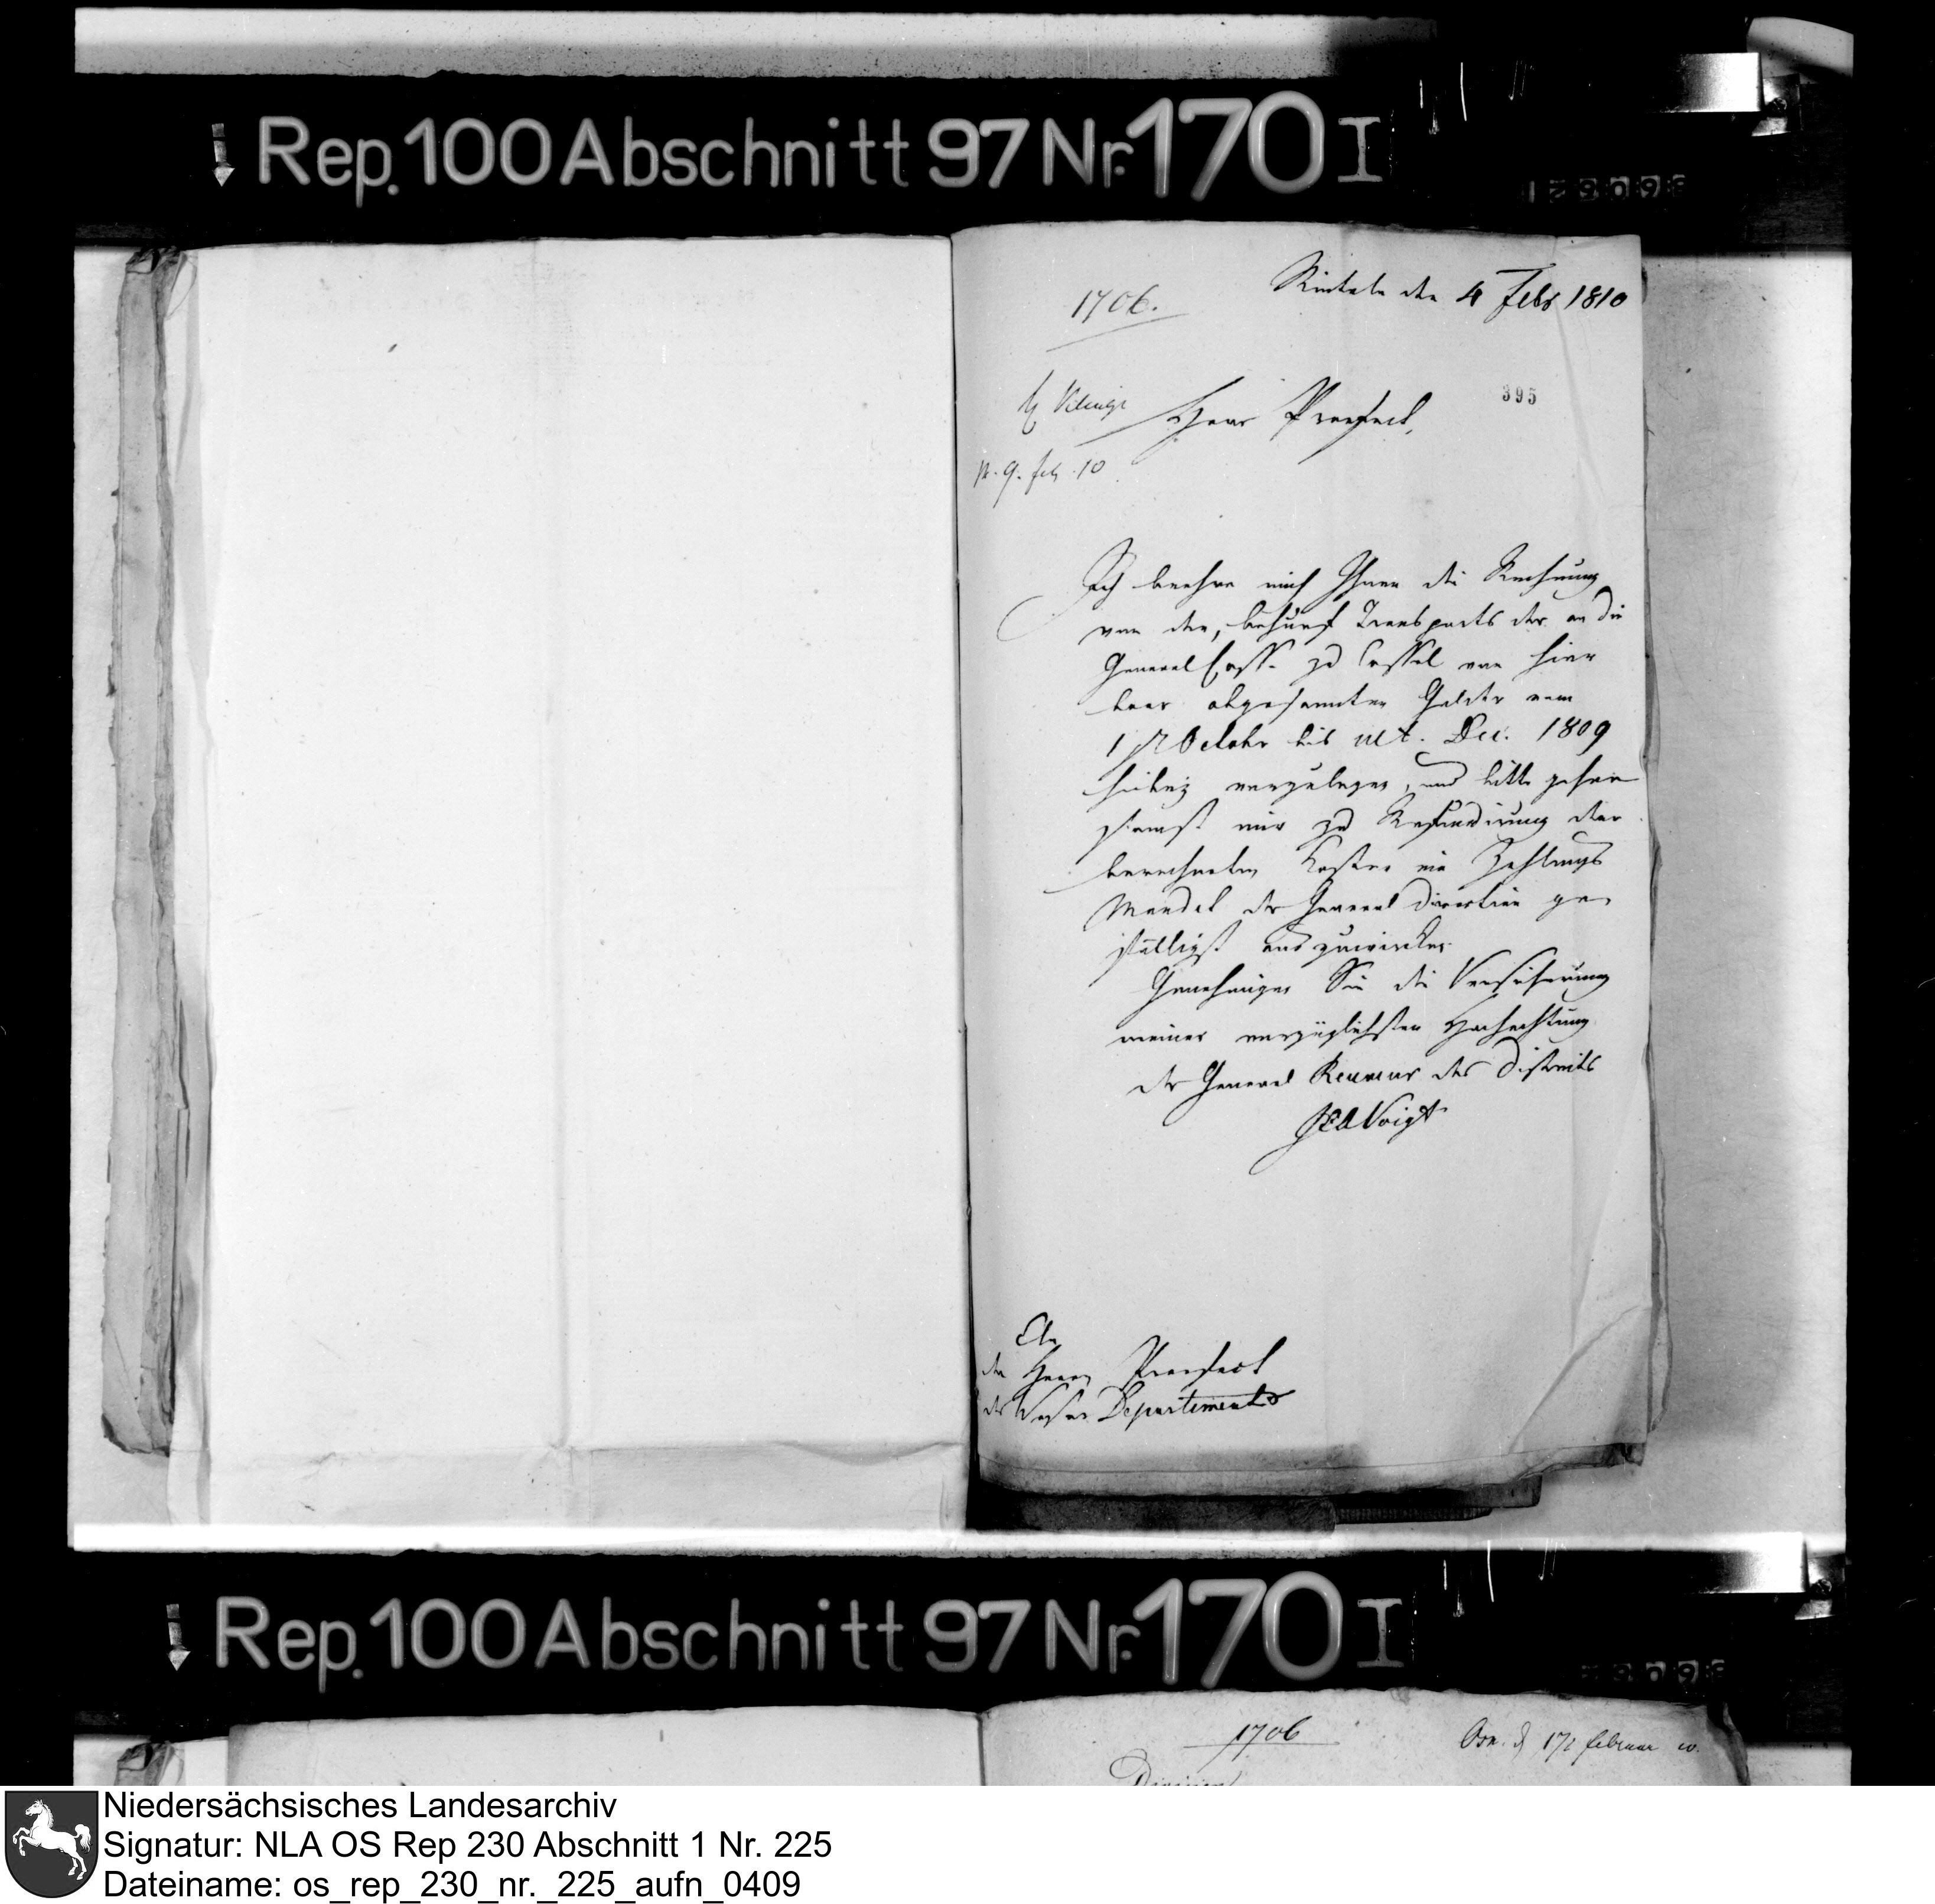 Rep. 100 Abschnitt 97 Nr. 170 I
Rinteln den 4 Febr 1810
1706.
395
Herr Praefect,
pr. 9. feb. 10
Ich beehre mich Ihnen die Rechnung
von den, behuef Transports der an die
General Casse zu Cassel von hier
baar abgesannten Gelder vom
1 October bis ult. Dec. 1809
hiebey vorzulegen, und bitte gehor
samst mir zu Refundirung der
berechneten Kosten ein Zahlungs
Mandat der General Direction ge
fälligst auszuwirken.
Genehmigen Sie die Versicherung
meiner vorzüglichsten Hochachtung
der General Receveur des Districts
Voigt
An
den Herrn Praefect
des Weser Departements
Rep. 100 Abschnitt 97 Nr. 170 I
1706
Osn. d 17 februar
Division
Niedersächsisches Landesarchiv
Signatur: NLA OS Rep 230 Abschnitt 1 Nr. 225
Dateiname: os_rep_230_nr._225_aufn_0409